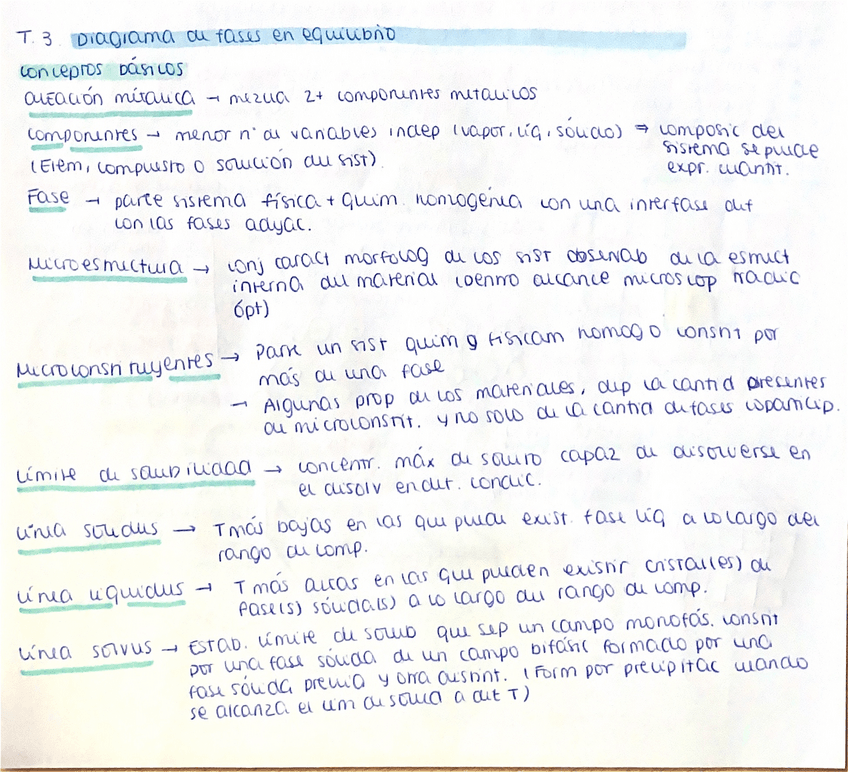 T. 3. Diagrama de fases en equilibrio
conceptos básicos
aleación metálica → mezcla 2+ componentes metálicos
componentes → menor nº de variables indep (vapor, líq, sólido) ⇒ composic del
sistema se puede
expr. cuantit.
(Elem, compuesto o solución del sist)
Fase → parte sistema física + quím. homogénea con una interfase def
con las fases adyac.
Microestructura → conj caract morfolog de los sist observab de la estruct
interna del material (dentro alcance microscop tradic
ópt)
Microconstituyentes → Parte un sist quim y físicam homog o constit por
más de una fase
→ Algunas prop de los materiales, dep la cantid presentes
de microconstit. y no solo de la cantid de fases coparticip.
Límite de solubilidad → concentr. máx de soluto capaz de disolverse en
el disolv en det. condic.
Línea solidus → T más bajas en las que puede exist. fase líq a lo largo del
rango de comp.
Línea liquidus → T más altas en las que pueden existir cristal(es) de
fase(s) sólida(s) a lo largo del rango de comp.
Línea solvus → Estab. límite de solub que sep un campo monofás. constit
por una fase sólida de un campo bifásic formado por una
fase sólida previa y otra distint. (Form por precipitac cuando
se alcanza el lim de solub a det T)